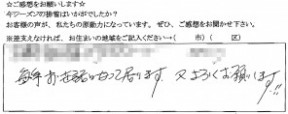 ☆ご感想をお願いします☆
今シーズンの接客はいかがでしたか?
お客様の声が、私たちの原動力になっています。ぜひ、ご感想をお聞かせ下さい。
※差支えなければ、お住まいの地域をご記入ください→( 市)( 区)
毎年お世話になって居ります。又よろしくお願いします!!